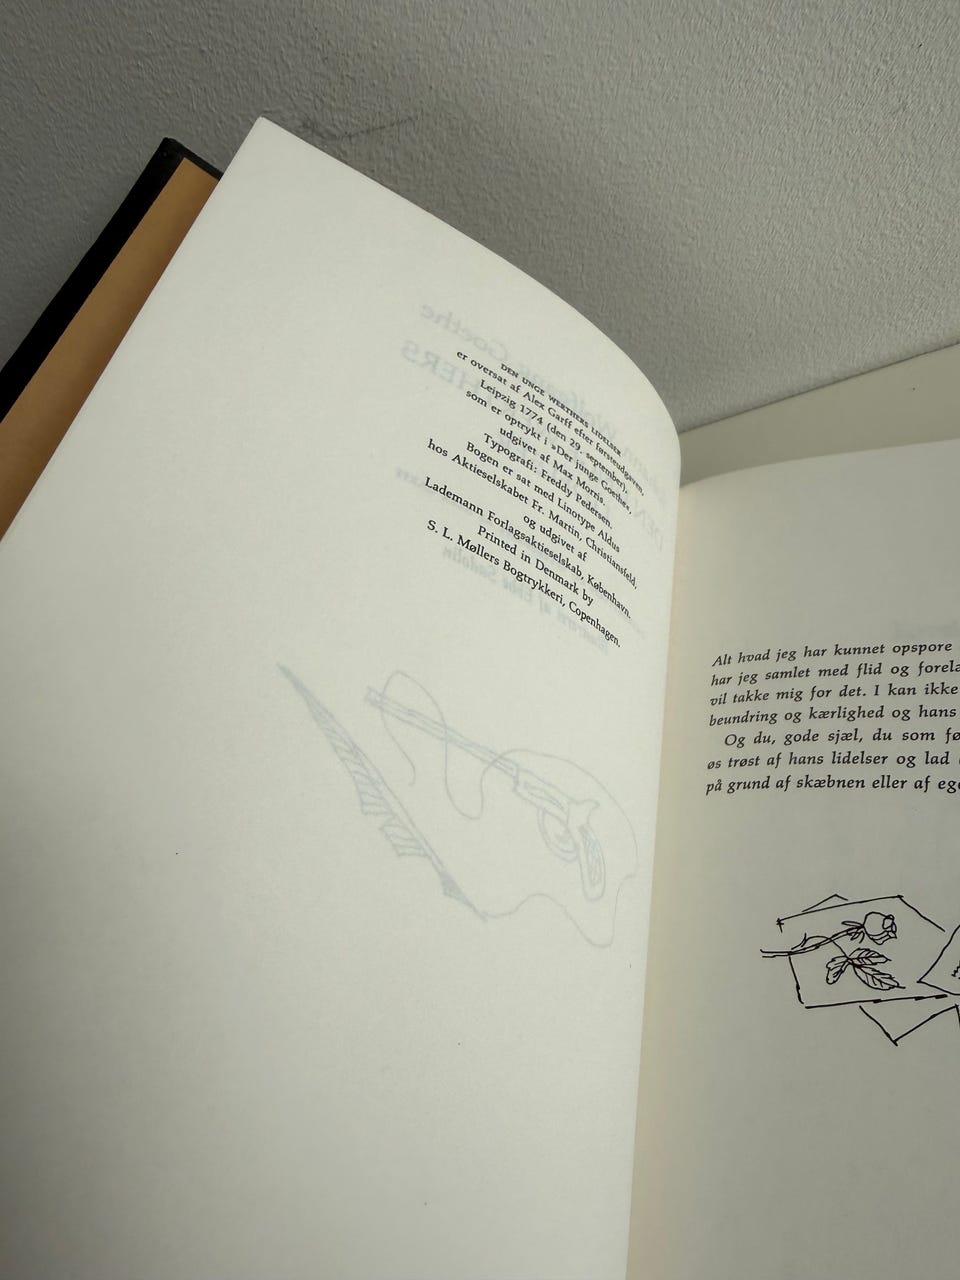 DEN UNGE WERTHERS LIDELSER
er oversat af Alex Garff efter førsteudgaven,
Leipzig 1774 (den 29. september),
som er optrykt i »Der junge Goethe«,
udgivet af Max Morris.
Typografi: Freddy Pedersen.
Bogen er sat med Linotype Aldus
hos Aktieselskabet Fr. Martin, Christiansfeld,
og udgivet af
Lademann Forlagsaktieselskab, København.
Printed in Denmark by
S. L. Møllers Bogtrykkeri, Copenhagen.
Alt hvad jeg har kunnet opspore
har jeg samlet med flid og
vil takke mig for det. I kan ikke
beundring og kærlighed og hans
Og du, gode sjæl, du som
øs trøst af hans lidelser og lad
på grund af skæbnen eller af